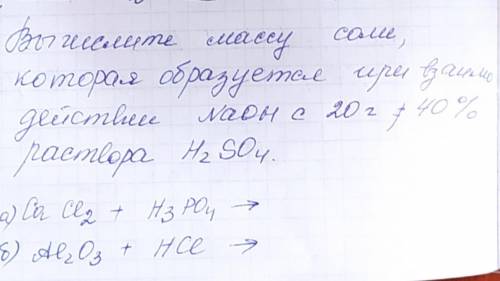 Вычислите массу соли,
которая образуется при взаимо
действии NaOH с 20 г 40%
раствора H2SO4.
а) Ca Cl2 + H3PO4 →
б) Al2O3 + HCl →